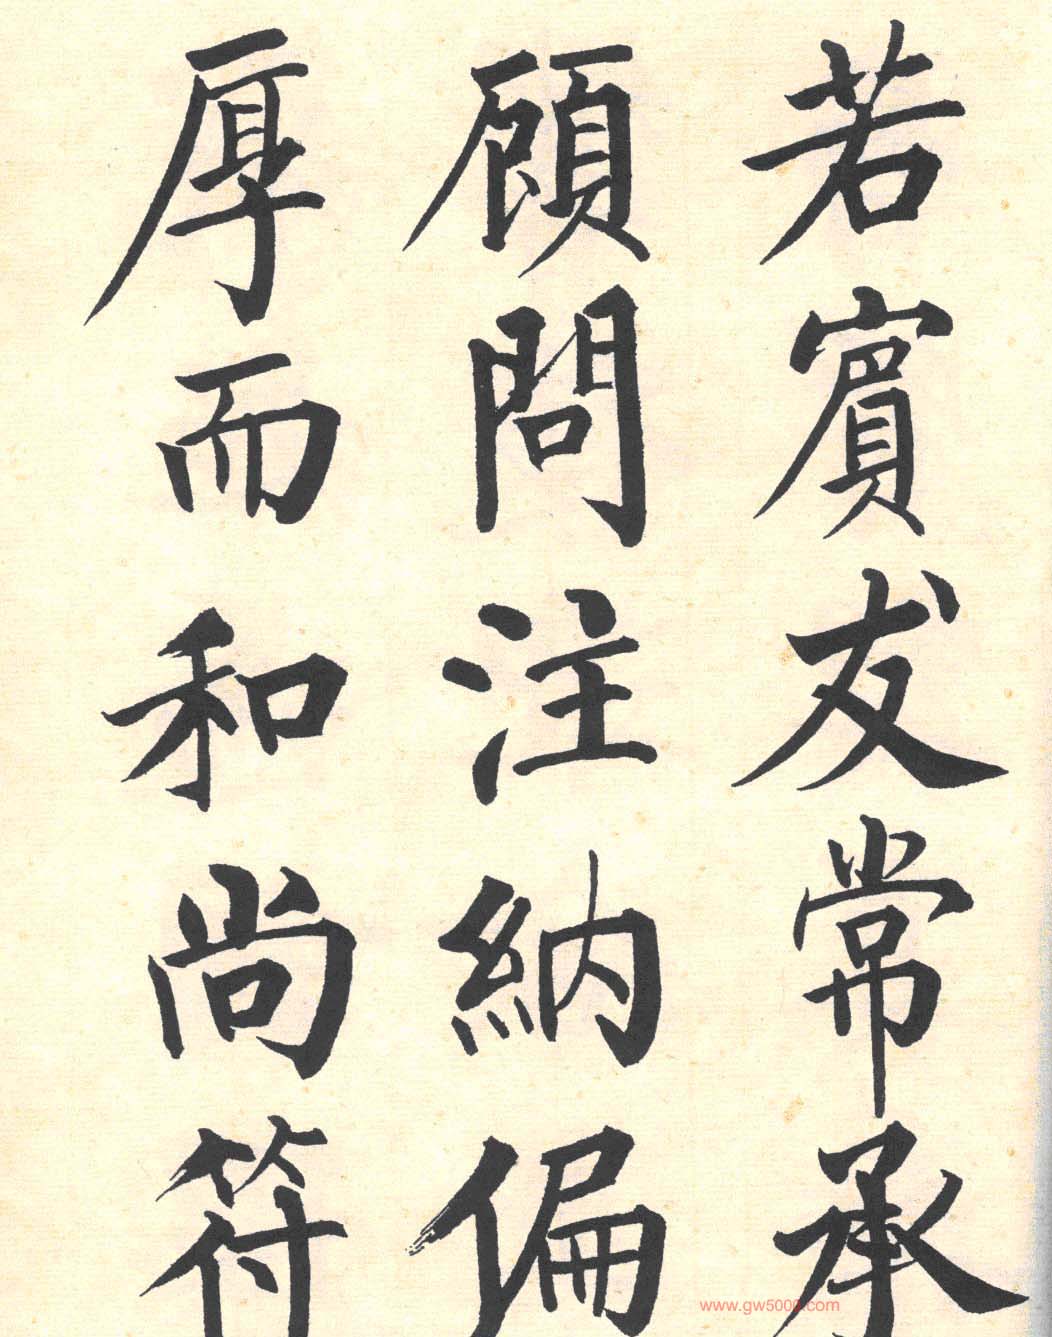 若賓友常承
顧問注納偏
厚而和尚符
www.gw5000.com